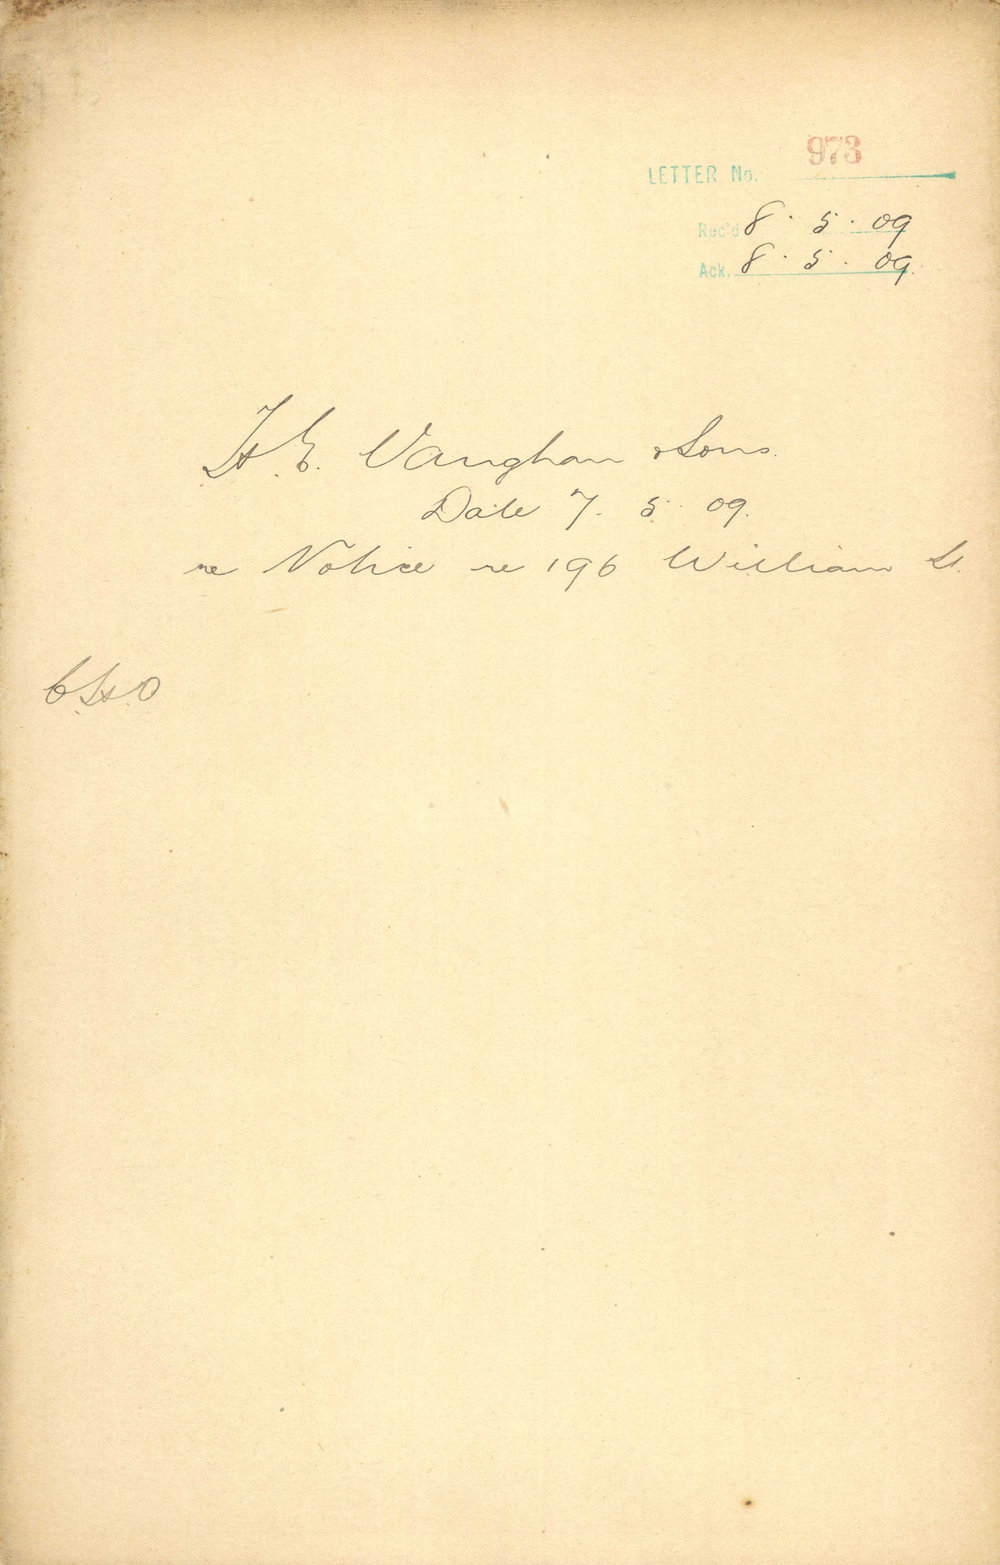 LETTER No. 973
Rec'd 8 · 5 · 09
Ack. 8 · 5 · 09.
H. E. Vaughan & Sons.
Date 7. 5. 09.
re Notice re 196 William St.
C.H.O